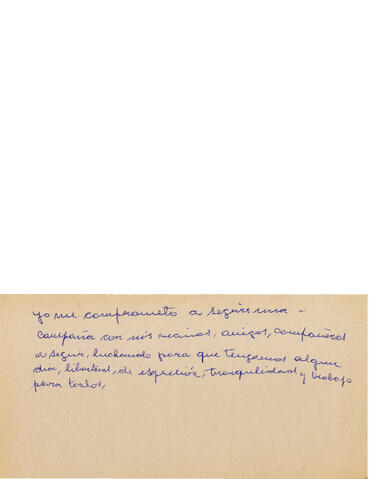 yo me comprometo a seguir una -
campaña con mis vecinos, amigos, compañeros
a seguir, luchando para que tengamos algun
dia, libertad, de espreción, tranquilidad y trabajo
para todos,